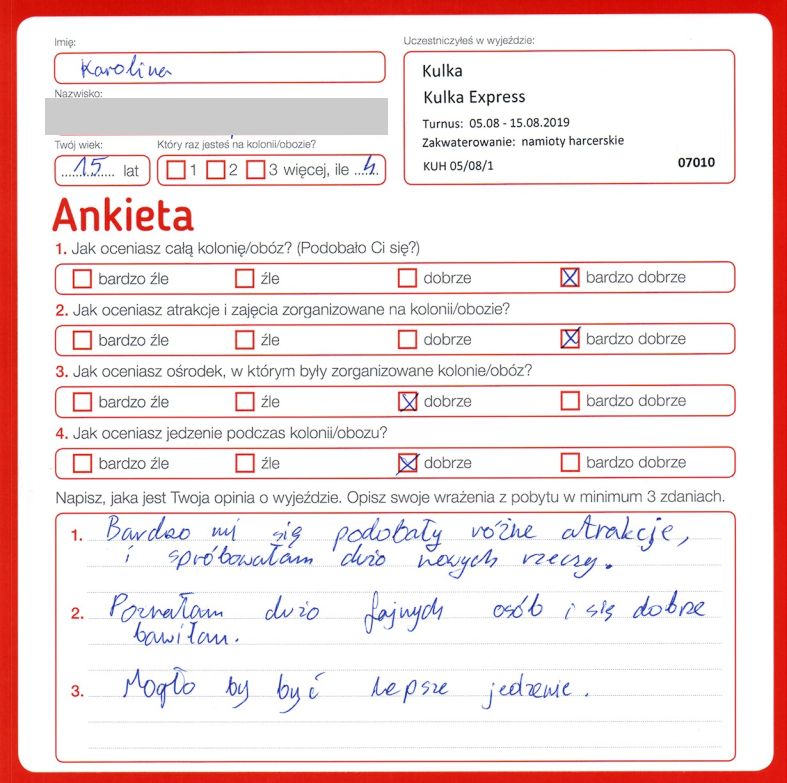 Imię:
Karolina
Nazwisko:
Twój wiek:
15 lat
Który raz jesteś na kolonii/obozie?
1 2 3 więcej, ile 4
Uczestniczyłeś w wyjeździe:
Kulka
Kulka Express
Turnus: 05.08 - 15.08.2019
Zakwaterowanie: namioty harcerskie
KUH 05/08/1 07010
Ankieta
1. Jak oceniasz całą kolonię/obóz? (Podobało Ci się?)
bardzo źle źle dobrze bardzo dobrze
2. Jak oceniasz atrakcje i zajęcia zorganizowane na kolonii/obozie?
bardzo źle źle dobrze bardzo dobrze
3. Jak oceniasz ośrodek, w którym były zorganizowane kolonie/obóz?
bardzo źle źle dobrze bardzo dobrze
4. Jak oceniasz jedzenie podczas kolonii/obozu?
bardzo źle źle dobrze bardzo dobrze
Napisz, jaka jest Twoja opinia o wyjeździe. Opisz swoje wrażenia z pobytu w minimum 3 zdaniach.
1. Bardzo mi się podobały różne atrakcje,
i spróbowałam dużo nowych rzeczy.
2. Poznałam dużo fajnych osób i się dobrze
bawiłam.
3. Mogło by być lepsze jedzenie.